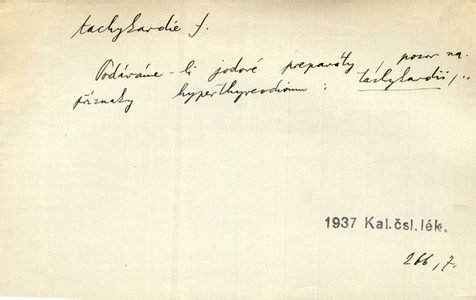 tachykardie f.
Podáváme-li jodové preparáty, pozor na
příznaky hyperthyreodismu: tachykardii,..
1937 Kal.čsl.lék.
266,7.